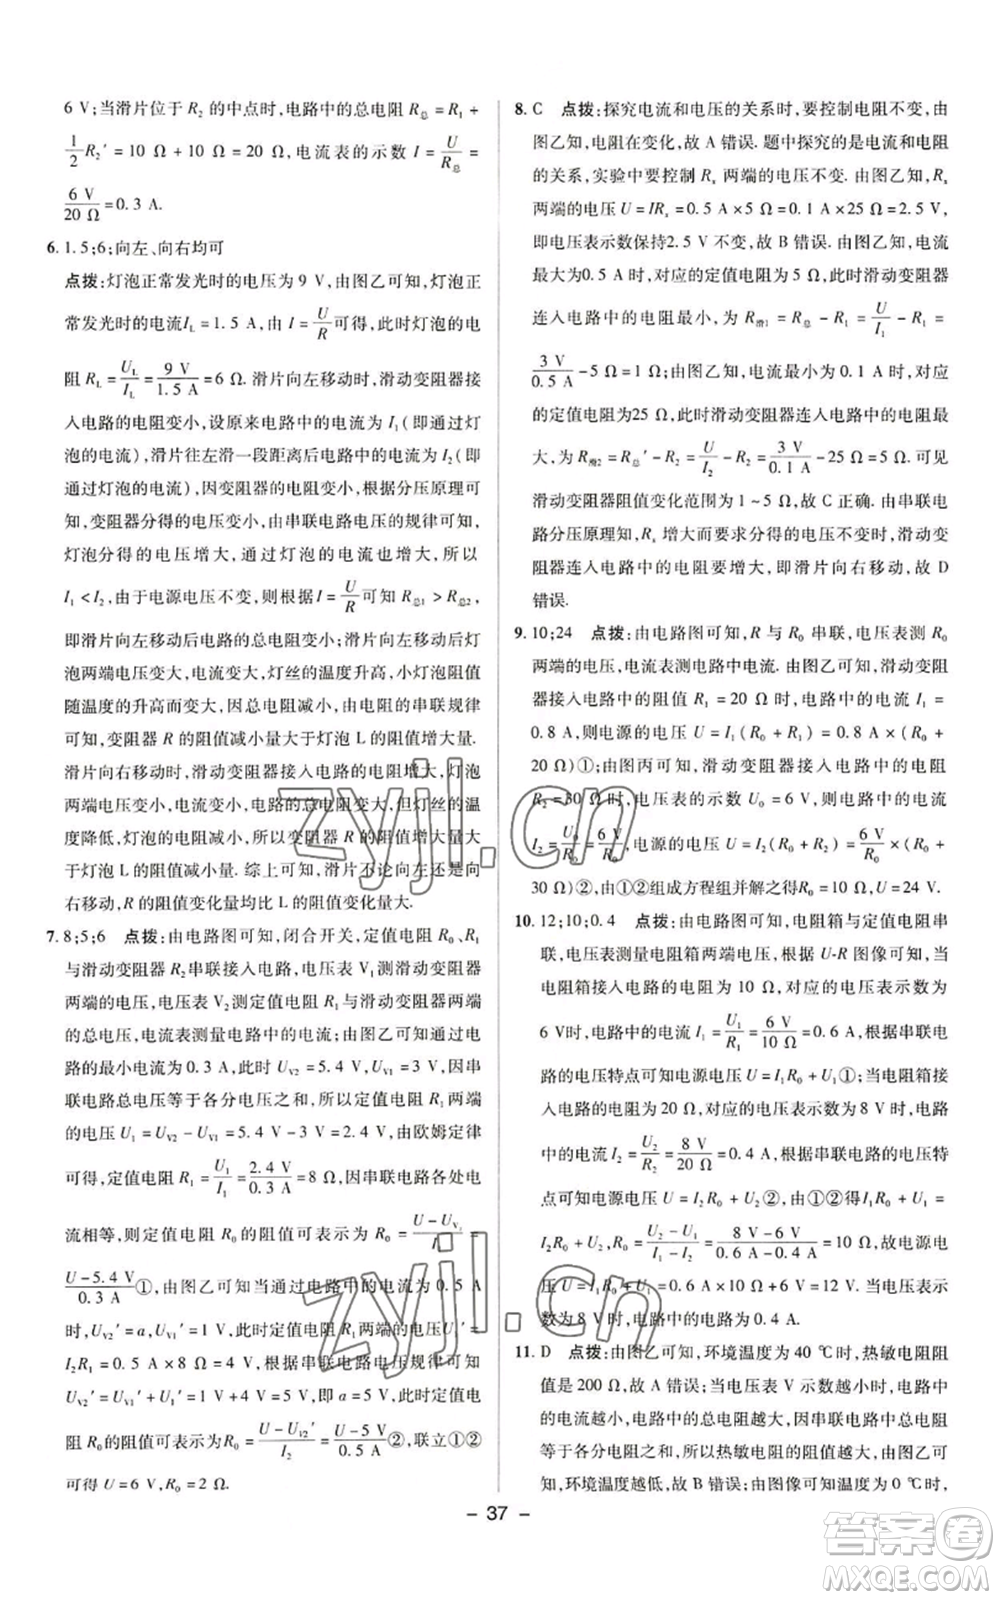 6 V;当滑片位于 R₂ 的中点时,电路中的总电阻 R总 = R₁ +
1/2 R₂′ = 10 Ω + 10 Ω = 20 Ω,电流表的示数 I = U/R总 =
6 V/20 Ω = 0.3 A.
6. 1.5;6;向左、向右均可
点拨:灯泡正常发光时的电压为 9 V,由图乙可知,灯泡正
常发光时的电流I_L = 1.5 A,由 I = U/R 可得,此时灯泡的电
阻 R_L = U_L/I_L = 9 V/1.5 A = 6 Ω. 滑片向左移动时,滑动变阻器接
入电路的电阻变小,设原来电路中的电流为 I₁(即通过灯
泡的电流),滑片往左滑一段距离后电路中的电流 I₂(即
通过灯泡的电流),因变阻器的阻值变小,根据分压原理可
知,变阻器分得的电压变小,由串联电路电压的规律可知,
灯泡分得的电压增大,通过灯泡的电流增大,所以
I₁ < I₂,由于电源电压不变,根据I = U/R 可知 R总1 > R总2,
即滑片向左移动后电路的总电阻变小;滑片向左移动后灯
泡两端电压变大,电流变大,灯丝的温度升高,小灯泡阻值
随温度的升高而变大,因总电阻减小,由电阻的串联规律
可知,变阻器 R 的阻值减小量大于灯泡 L 的阻值增大量.
滑片向右移动时,滑动变阻器接入电路的电阻增大,灯泡
两端电压变小,电流变小,电路的总电阻变大,灯丝的温
度降低,灯泡的电阻减小,所以变阻器 R 的阻值增大量大
于灯泡 L 的阻值减小量. 综上可知,滑片不论向左还是向
右移动,R 的阻值变化量均比 L 的阻值变化量大.
7. 8;5;6 点拨:由电路图可知,闭合开关,定值电阻 R₀、R₁
与滑动变阻器 R₂串联接入电路,电压表 V₁测滑动变阻器
两端的电压,电压表 V₂测定值电阻 R₁与滑动变阻器两端
的总电压,电流表测量电路中的电流;由图乙可知通过电
路的最小电流为 0.3 A,此时 U_V2 = 5.4 V,U_V1 = 3 V,因串
联电路总电压等于各分电压之和,所以定值电阻 R₁两端
的电压 U₁ = U_V2 − U_V1 = 5.4 V − 3 V = 2.4 V,由欧姆定律
可得,定值电阻 R₁ = U₁/I₁ = 2.4 V/0.3 A = 8 Ω,因串联电路各处电
流相等,则定值电阻 R₀ 的阻值可表示为 R₀ = (U − U_V₂)/I₁ =
(U − 5.4 V)/0.3 A①,由图乙可知当通过电路中的电流为 0.5 A
时,U_V2′ = a,U_V1′ = 1 V,此时定值电阻 R₁两端的电压U₁′ =
I₂R₁ = 0.5 A × 8 Ω = 4 V,根据串联电路电压规律可得
U_V2′ = U_V1′ + U₁′ = 1 V + 4 V = 5 V,即 a = 5 V,此时定值电
阻 R₀的阻值可表示为R₀ = (U − U_V2′)/I₂ = (U − 5 V)/0.5 A②,联立①②
可得 U = 6 V,R₀ = 2 Ω.
8. C 点拨:探究电流和电压的关系时,要控制电阻不变,由
图乙知,电阻在变化,故 A 错误. 题中探究的是电流和电阻
的关系,实验中要控制 Rₓ 两端的电压不变. 由图乙知,Rₓ
两端的电压 U = IRₓ = 0.5 A × 5 Ω = 0.1 A × 25 Ω = 2.5 V,
即电压表示数保持2.5 V 不变,故 B 错误. 由图乙知,电流
最大为0.5 A 时,对应的定值电阻为 5 Ω,此时滑动变阻器
连入电路中的电阻最小,为 R滑1 = R总 − R₁ = U/I₁ − R₁ =
3 V/0.5 A − 5 Ω = 1 Ω;由图乙知,电流最小为 0.1 A 时,对应
的定值电阻为25 Ω,此时滑动变阻器连入电路中的电阻最
大,为 R滑2 = R总′ − R₂ = U/I₂ − R₂ = 3 V/0.1 A − 25 Ω = 5 Ω. 可见
滑动变阻器阻值变化范围为 1 ~ 5 Ω,故 C 正确. 由串联电
路分压原理知,Rₓ 增大而要求分得的电压不变时,滑动变
阻器连入电路中的电阻要增大,即滑片向右移动,故 D
错误.
9. 10;24 点拨:由电路图可知,R 与 R₀ 串联,电压表测 R₀
两端的电压,电流表测电路中电流. 由图乙可知,滑动变阻
器接入电路中的阻值 R₁ = 20 Ω 时,电路中的电流 I₁ =
0.8 A,则电源的电压 U = I₁(R₀ + R₁) = 0.8 A × (R₀ +
20 Ω)①;由图丙可知,滑动变阻器接入电路中的电阻
R₂ = 30 Ω 时,电压表的示数 U₀ = 6 V,则电路中的电流
I₂ = U₀/R₀ = 6 V/R₀,电源的电压 U = I₂(R₀ + R₂) = 6 V/R₀ × (R₀ +
30 Ω)②,由①②组成方程组并解之得R₀ = 10 Ω,U = 24 V.
10. 12;10;0.4 点拨:由电路图可知,电阻箱与定值电阻串
联,电压表测量电阻箱两端电压,根据 U-R 图像可知,当
电阻箱接入电路的电阻为 10 Ω,对应的电压表示数为
6 V时,电路中的电流 I₁ = U₁/R₁ = 6 V/10 Ω = 0.6 A,根据串联电
路的电压特点可知电源电压 U = I₁R₀ + U₁①;当电阻箱接
入电路的电阻为 20 Ω,对应的电压表示数为 8 V 时,电路
中的电流 I₂ = U₂/R₂ = 8 V/20 Ω = 0.4 A,根据串联电路的电压特
点可知电源电压 U = I₂R₀ + U₂②,由①②得I₁R₀ + U₁ =
I₂R₀ + U₂,即R₀ = (U₂ − U₁)/(I₁ − I₂) = (8 V − 6 V)/(0.6 A − 0.4 A) = 10 Ω,故电源电
压 U = I₁R₀ + U₁ = 0.6 A × 10 Ω + 6 V = 12 V. 当电压表示
数为 8 V 时,电路中的电流为 0.4 A.
11. D 点拨:由图乙可知,环境温度为 40 ℃时,热敏电阻阻
值是 200 Ω,故 A 错误;当电压表 V 示数越小时,电路中
的电流越小,电路中的总电阻越大,因串联电路中总电阻
等于各分电阻之和,所以热敏电阻的阻值越大,由图乙可
知,环境温度越低,故 B 错误;由图像可知温度为 0 ℃时,
– 37 –
zyjl.cn
zyjl.cn
答案卷
MXQE.COM